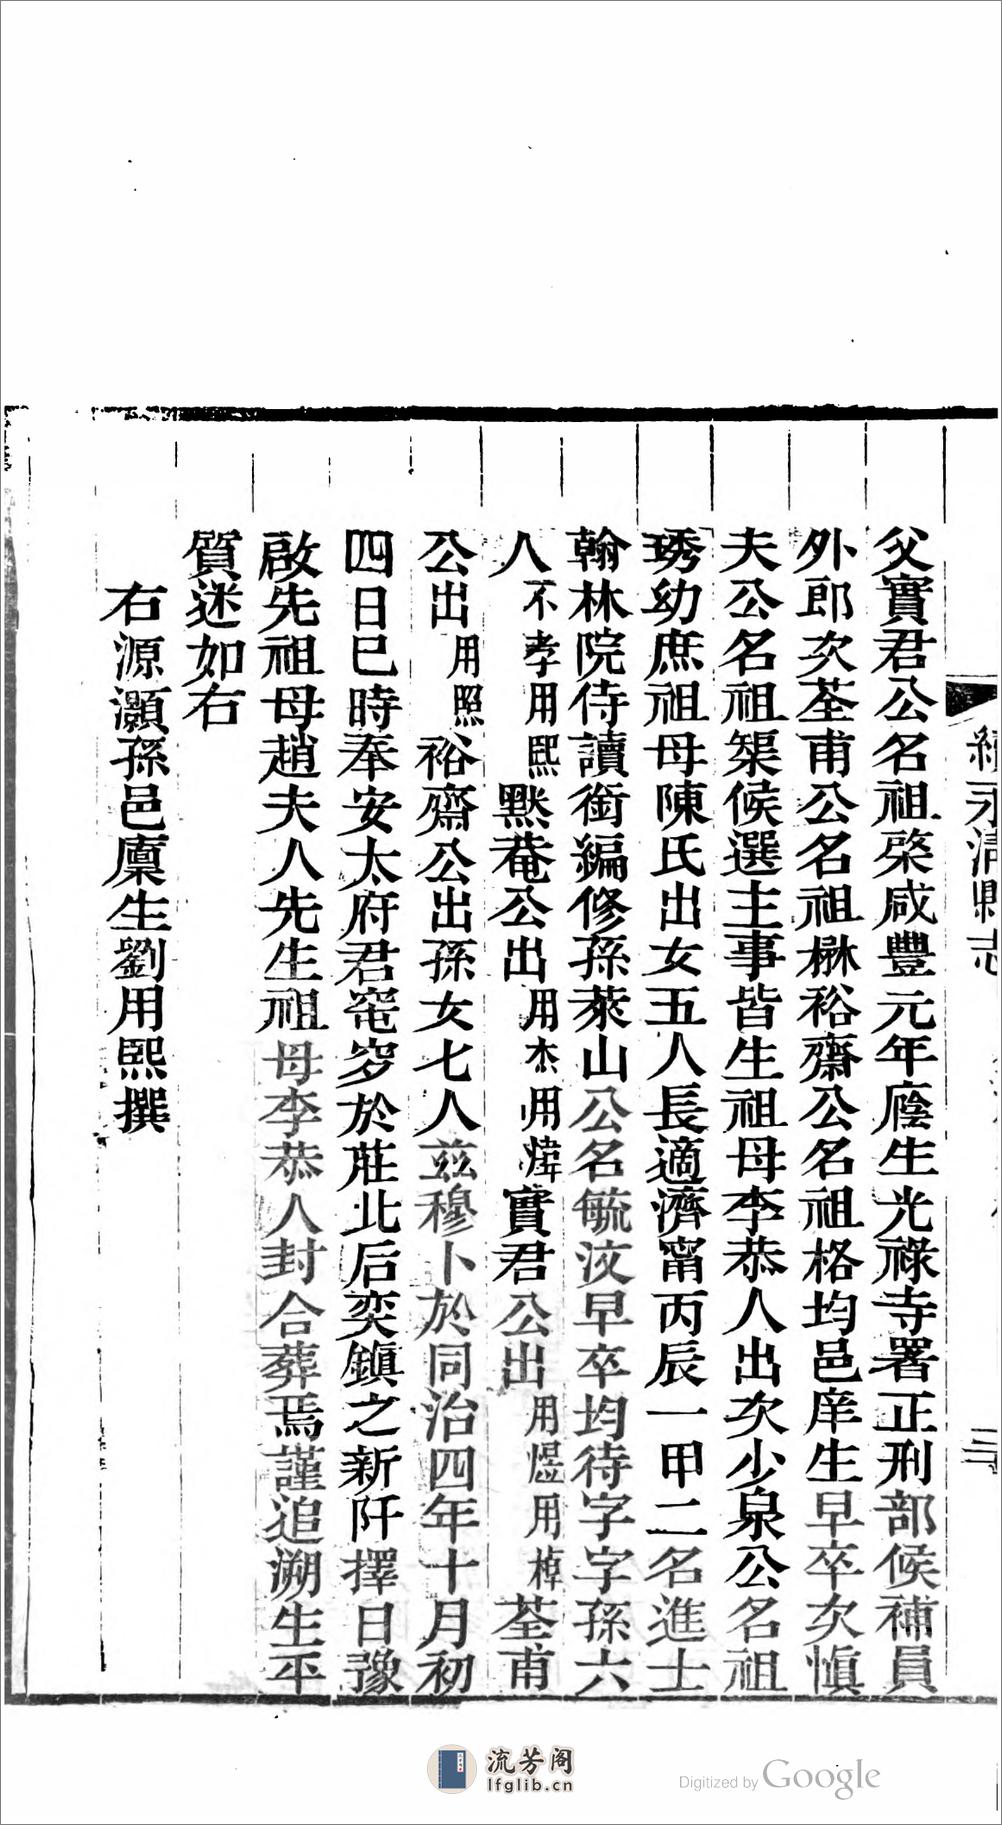 續永清縣志
父實君公名祖棨咸豐元年廕生光祿寺署正刑部候補員
外郎次荃甫公名祖楙裕齋公名祖格均邑庠生早卒次愼
夫公名祖榘候選主事皆生祖母李恭人出次少泉公名祖
琇幼庶祖母陳氏出女五人長適濟甯丙辰一甲二名進士
翰林院侍讀銜編修孫萊山公名毓汶早卒均待字字孫六
人不孝用熙默菴公出用杰用煒實君公出用煜用棹荃甫
公出用照裕齋公出孫女七人茲穆卜於同治四年十月初
四日巳時奉安太府君窀穸於莊北后奕鎭之新阡擇日豫
啟先祖母趙夫人先生祖母李恭人封合葬焉謹追溯生平
質迷如右
右源灝孫邑廩生劉用熙撰
流芳阁
lfglib.cn
Digitized by Google